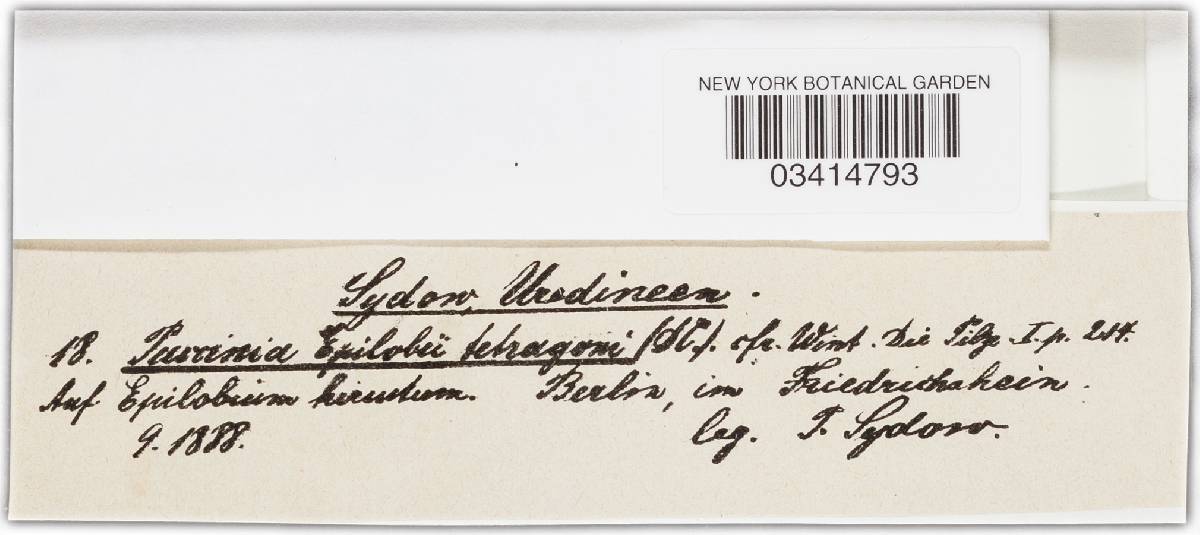 NEW YORK BOTANICAL GARDEN
03414793
Sydow, Uredineen.
18. Puccinia Epilobii tetragoni (DC.). cfr. Wint. Die Pilze I. p. 214.
Auf Epilobium hirsutum. Berlin, im Friedrichshain.
9. 1888. leg. P. Sydow.